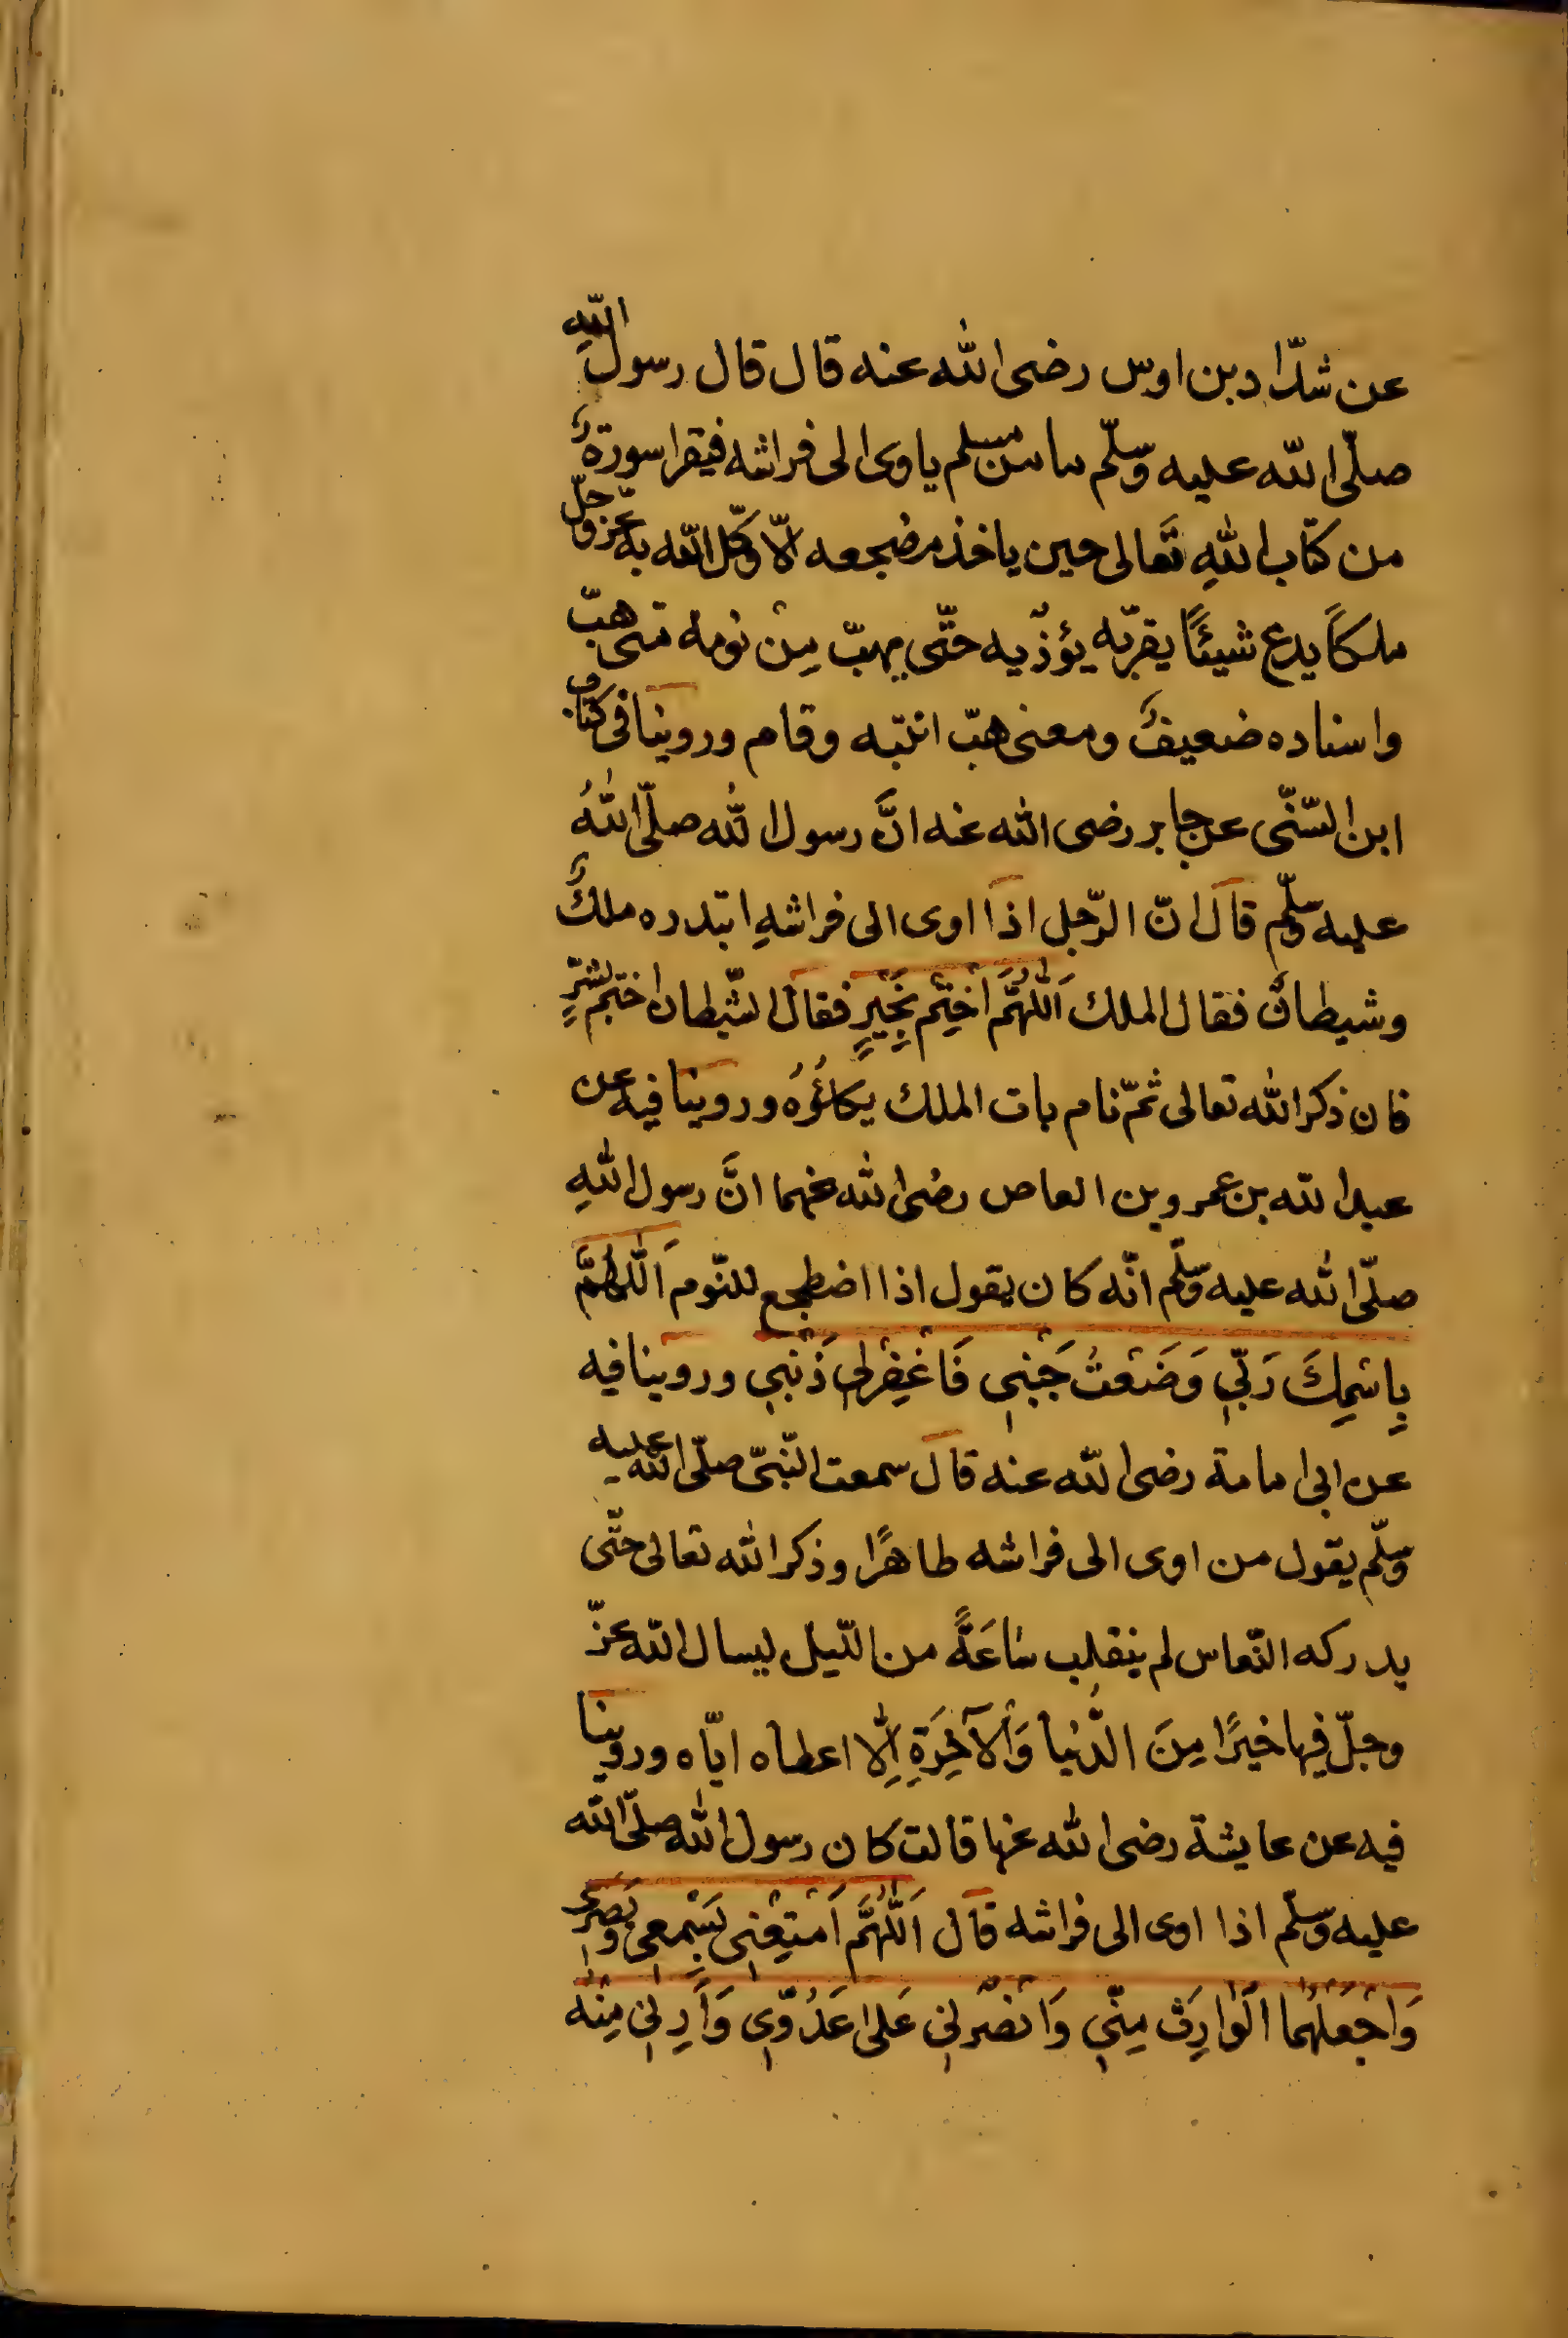 عن شدّاد بن اوس رضى الله عنه قال قال رسول اللّهِ
صلّى اللّه عليه وسلّم ما من مسلم ياوى الى فراشه فيقرا سورةً
من كتاب اللهِ تَعالى حين ياخذ مضجعه الّا وكّل اللّه به عزّ وجلّ
ملكاً يدع شيئًا يقربّه يؤذيه حتّى يهبّ مِنْ نومه متى هبّ
واسناده ضعيفٌ ومعنى هبّ انتبّه وقام وروينا فى كتاب
ابن السّنّى عن جابر رضى الله عنه انَّ رسول اللّه صلّى اللّهُ
عليه وسلّم قال انّ الرّجل اذا اوى الى فراشهِ ابتدره ملكٌ
وشيطانٌ فقال الملك اَللّهُمَّ اخْتِمْ بِخَيْرٍ فقال الشّيطان اختم بشرٍّ
فان ذكر الله تعالى ثمّ نام بات الملك يكلؤُهُ وروينا فيه عن
عبد اللّه بن عمرو بن العاص رضى الله عنهما انَّ رسول اللهِ
صلّى الله عليه وسلّم انّه كان يقول اذا اضطجع للنّوم اَللّهُمَّ
بِاسْمِكَ رَبّي وَضَعْتُ جَنْبِي فَاغْفِرْلِي ذَنْبِي وروينا فيه
عن ابى امامة رضى اللّه عنه قال سمعت النّبىّ صلّى اللّه عليه
وسلّم يقول من اوى الى فراشه طاهرًا وذكر اللّه تعالى حتّى
يدركه النّعاس لم ينقلب سَاعَةً من اللّيل ليسال اللّه عزّ
وجلّ فيها خيرًا مِنَ الدُّنْيا وَالْآخِرَةِ اِلّا اعطاه ايّاه وروينا
فيه عن عايشة رضى الله عنها قالت كان رسول اللّه صلّى اللّه
عليه وسلّم اذا اوى الى فراشه قال اَللّهُمَّ اَمْتِعْنِى بِسَمْعِى وَبَصَرِى
وَاجْعَلْهُما الْوارِثَ مِنّي وَانْصُرْنِي عَلى عَدُوّي وَاَرِنِي مِنْه